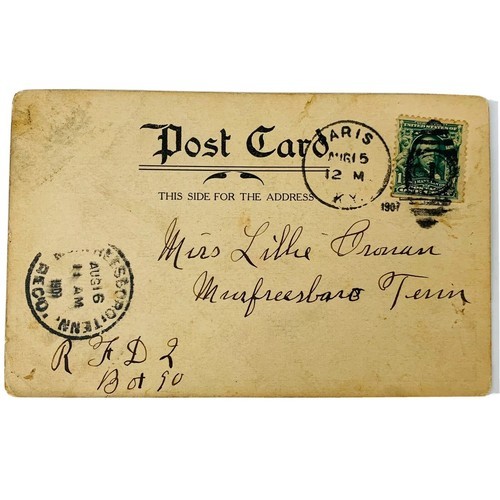 Post Card
THIS SIDE FOR THE ADDRESS
PARIS
AUG 15
12 M.
KY.
1907
UNITED STATES OF
Miss Lillie Cronan
Murfreesboro Tenn
MURFREESBORO, TENN.
AUG 16
11 AM
REC'D.
R F D 2
Box 90